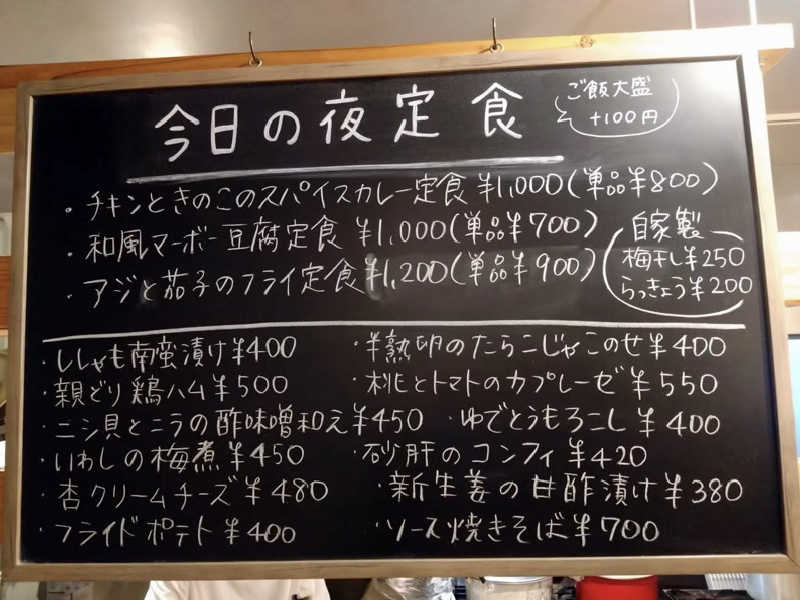 今日の夜定食
ご飯大盛
+100円
・チキンときのこのスパイスカレー定食 ¥1,000(単品¥800)
・和風マーボー豆腐定食 ¥1,000(単品¥700)
・アジと茄子のフライ定食¥1,200(単品¥900)
自家製
梅干し¥250
らっきょう¥200
・ししゃも南蛮漬け¥400
・親どり鶏ハム¥500
・ニシ貝とニラの酢味噌和え¥450
・いわしの梅煮¥450
・杏クリームチーズ¥480
・フライドポテト¥400
・半熟卵のたらこじゃこのせ¥400
・桃とトマトのカプレーゼ¥550
・ゆでとうもろこし¥400
・砂肝のコンフィ¥420
・新生姜の甘酢漬け¥380
・ソース焼きそば¥700